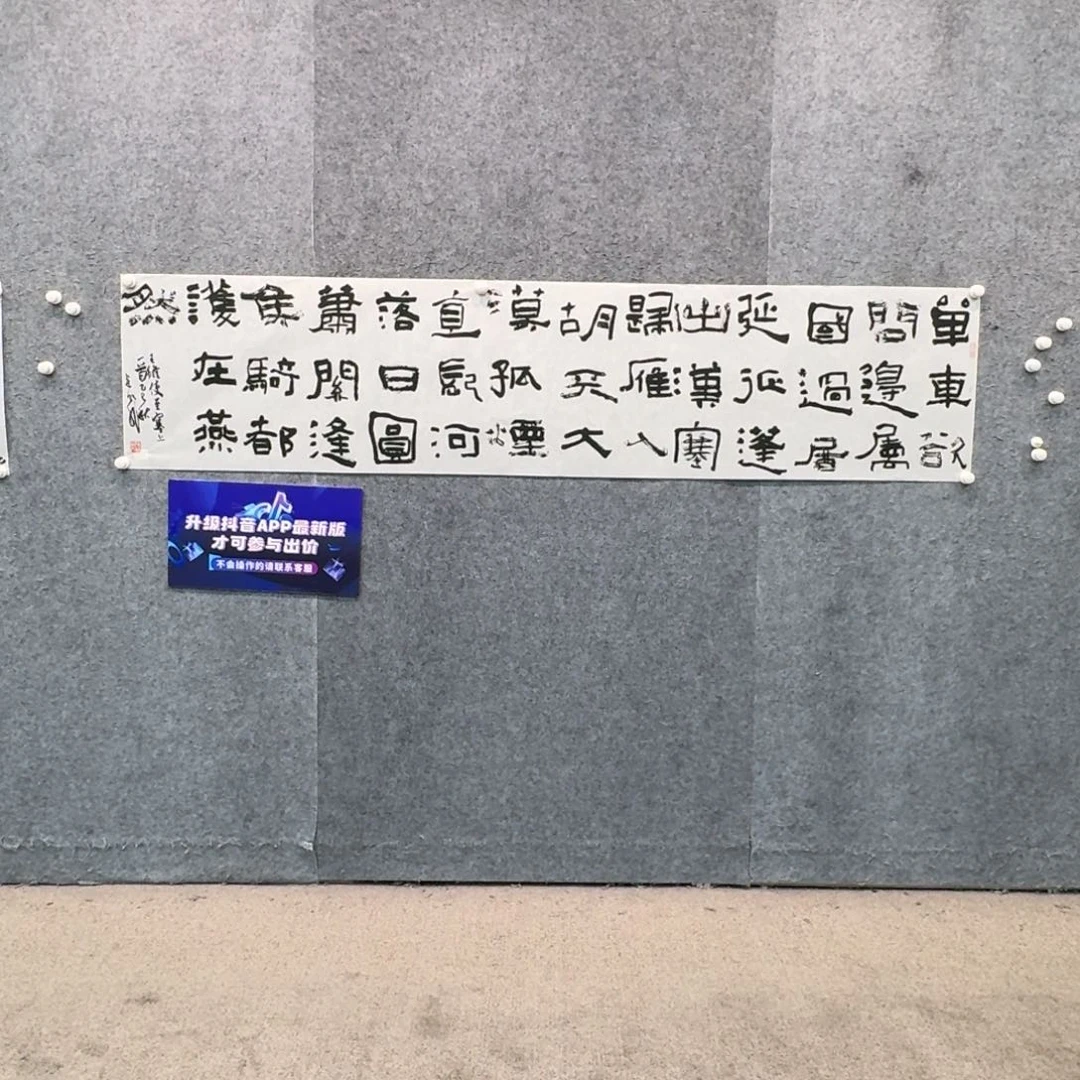 單車欲
問邊屬
國過居
延征蓬
出漢塞
歸雁入
胡天大
漠孤煙
直長河
落日圓
蕭關逢
候騎都
護在燕
然
王維使至塞上
一首乙巳秋
升级抖音APP最新版
才可参与出价
不会操作的请联系客服